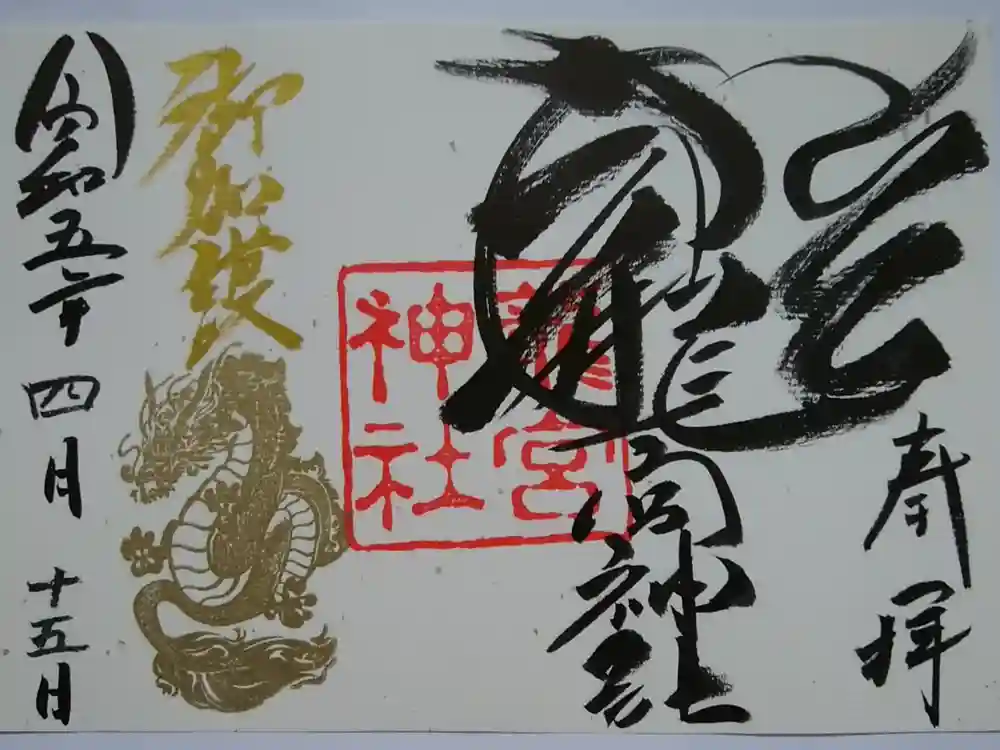 奉拝
龍宮神社
龍宮
神社
御加護
令和五年 四月 十五日